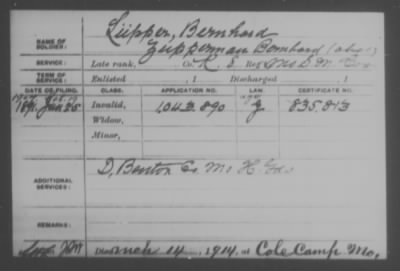 NAME OF SOLDIER: Lüpper, Bernhard
Zupperman Bernhard (alias)
SERVICE: Late rank, Co. K, 5 Reg't Mo. S. M. Cav.
TERM OF SERVICE: Enlisted , 1 Discharged , 1
DATE OF FILING. CLASS. APPLICATION NO. LAW. CERTIFICATE NO.
1891 Jan 25 Invalid, 1,043.890 835.813
Widow,
Minor,
ADDITIONAL SERVICES: D, Benton Co Mo H. Gds
REMARKS:
Died Mch 14, 1914, at Cole Camp Mo.